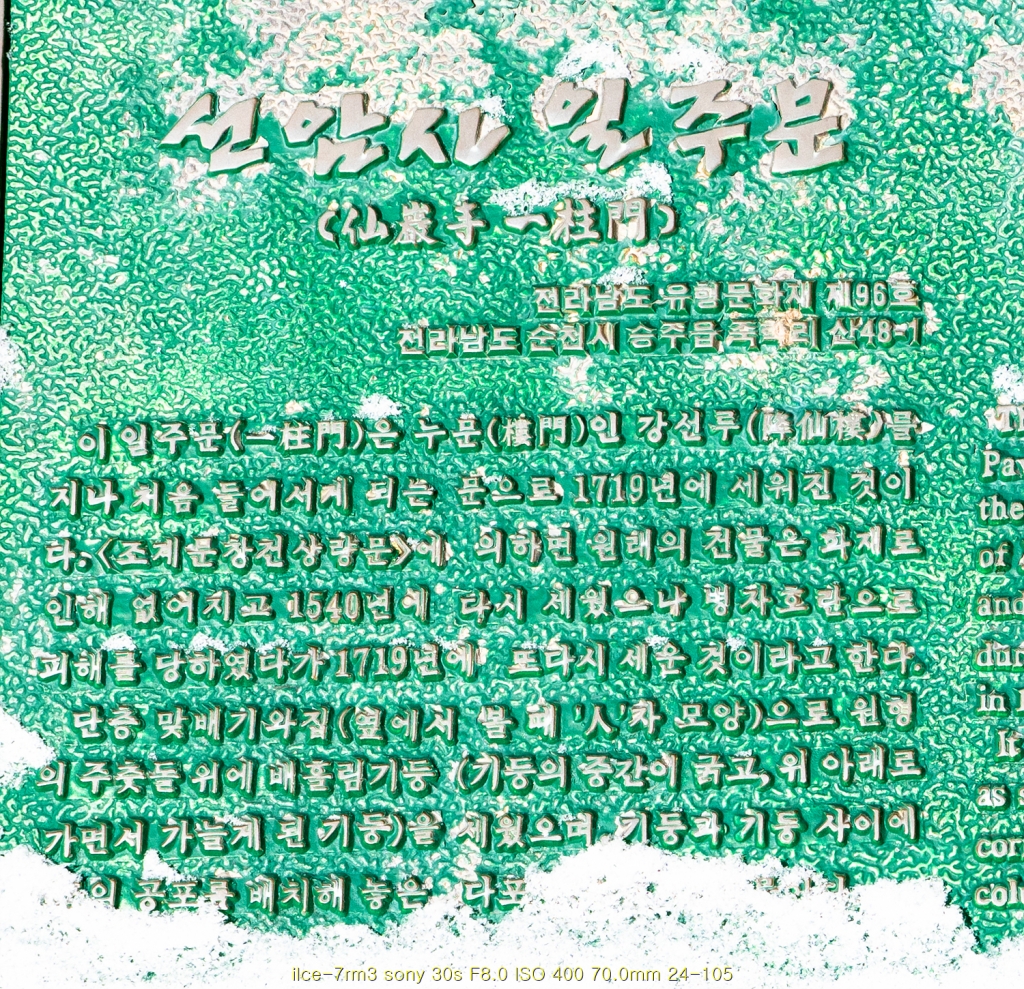 선암사 일주문
(仙巖寺 一柱門)
전라남도 유형문화재 제96호
전라남도 순천시 승주읍 죽학리 산48-1
이 일주문(一柱門)은 누문(樓門)인 강선루(降仙樓)를
지나 처음 들어서게 되는 문으로 1719년에 세워진 것이
다.《조계문창건상량문》에 의하면 원래의 건물은 화재로
인해 없어지고 1540년에 다시 세웠으나 병자호란으로
피해를 당하였다가 1719년에 또다시 세운 것이라고 한다.
단층 맞배기와집(옆에서 볼 때 '人'자 모양)으로 원형
의 주춧돌 위에 배흘림기둥 (기둥의 중간이 굵고, 위 아래로
가면서 가늘게 된 기둥)을 세웠으며 기둥과 기둥 사이에
의 공포를 배치해 놓은 다포
Pav
the
of
and
dur
in
It
as
cor
colu
ilce-7rm3 sony 30s F8.0 ISO 400 70.0mm 24-105